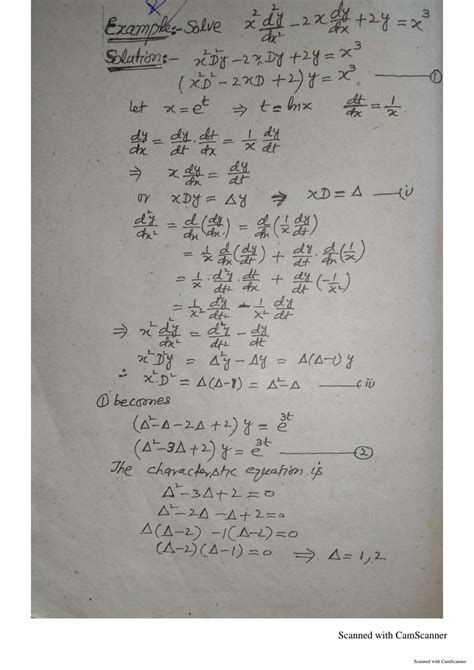 Example:- Solve x² d²y/dx² - 2x dy/dx + 2y = x³
Solution:- x²D²y - 2xDy + 2y = x³
(x²D² - 2xD + 2) y = x³ — ①
let x = eᵗ ⇒ t = lnx dt/dx = 1/x
dy/dx = dy/dt · dt/dx = 1/x dy/dt
⇒ x dy/dx = dy/dt
or xDy = Δy ⇒ xD = Δ — (i)
d²y/dx² = d/dx (dy/dx) = d/dx (1/x dy/dt)
= 1/x d/dx (dy/dt) + dy/dt · d/dx (1/x)
= 1/x · d²y/dt² · dt/dx + dy/dt (-1/x²)
= 1/x² d²y/dt² - 1/x² dy/dt
⇒ x² d²y/dx² = d²y/dt² - dy/dt
x²D²y = Δ²y - Δy = Δ(Δ-1) y
∴ x²D² = Δ(Δ-1) = Δ²-Δ — (ii)
① becomes
(Δ²-Δ-2Δ+2) y = e³ᵗ
(Δ²-3Δ+2) y = e³ᵗ — ②
The characterstic equation is
Δ²-3Δ+2 = 0
Δ²-2Δ-Δ+2 = 0
Δ(Δ-2) -1(Δ-2) = 0
(Δ-2)(Δ-1) = 0 ⇒ Δ = 1, 2
Scanned with CamScanner
Scanned with CamScanner